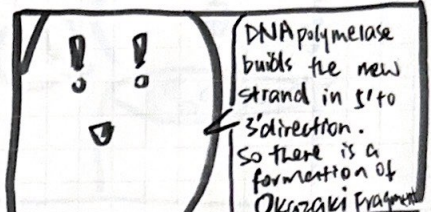 DNA polymelase
builds the new
strand in 5' to
3' direction.
So there is a
formention of
Okazaki Fragment